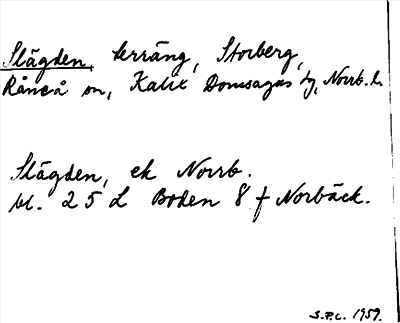 Slägden, terräng, Storberg,
Råneå sn, Kalix Domsagas tg, Norrb. l.
Slägden, ek Norrb.
bl. 25 L Boden 8 f Norbäck.
S.P.C. 1959.